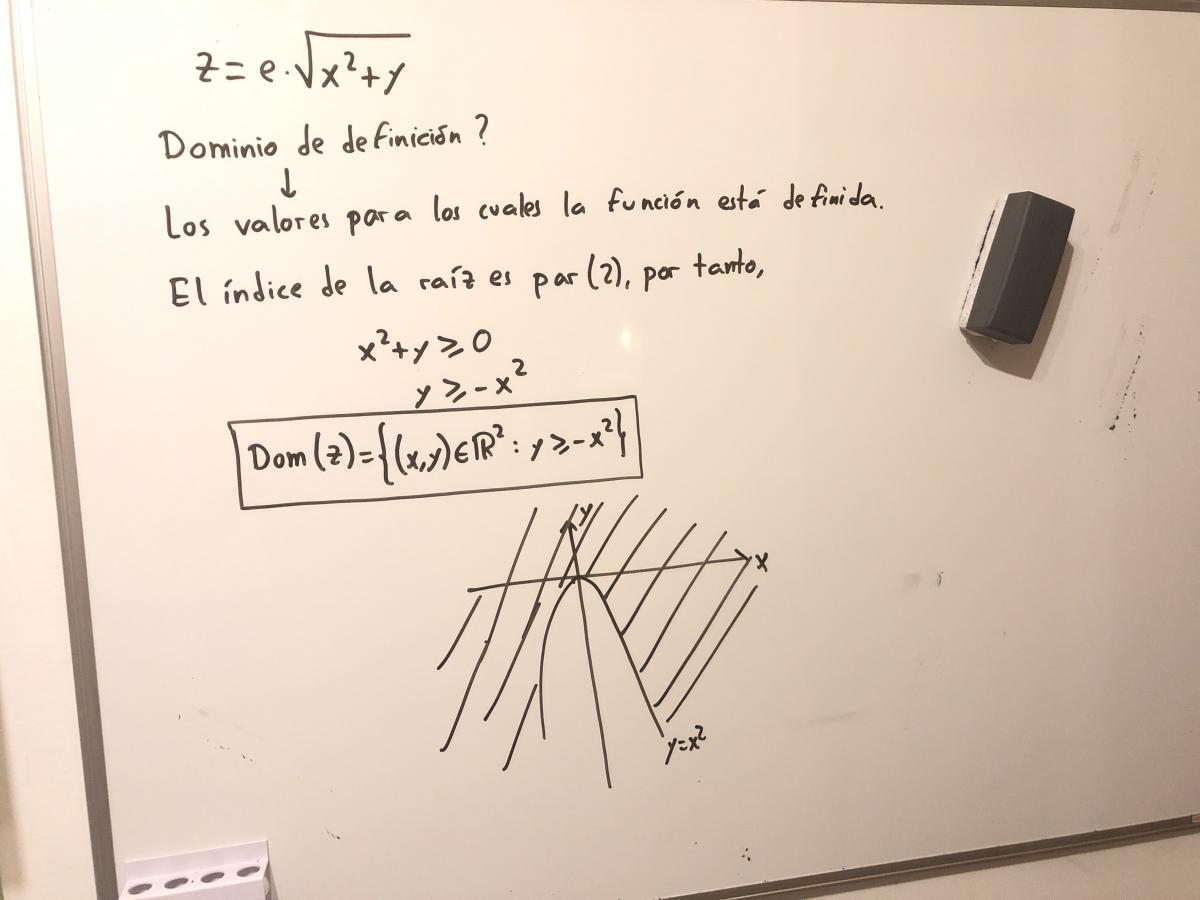 z = e·√(x²+y)
Dominio de definición?
↓
Los valores para los cuales la función está definida.
El índice de la raíz es par (2), por tanto,
x²+y ⩾ 0
y ⩾ -x²
Dom(z)={(x,y)∈ℝ² : y ⩾ -x²}
y
x
y=x²